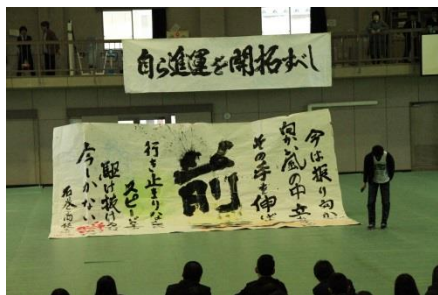 自ら進運を開拓すべし
今は振り向か
向かい風の中
その手を伸ば
前
行き止まりな
スピード
駆け抜け
今しかない